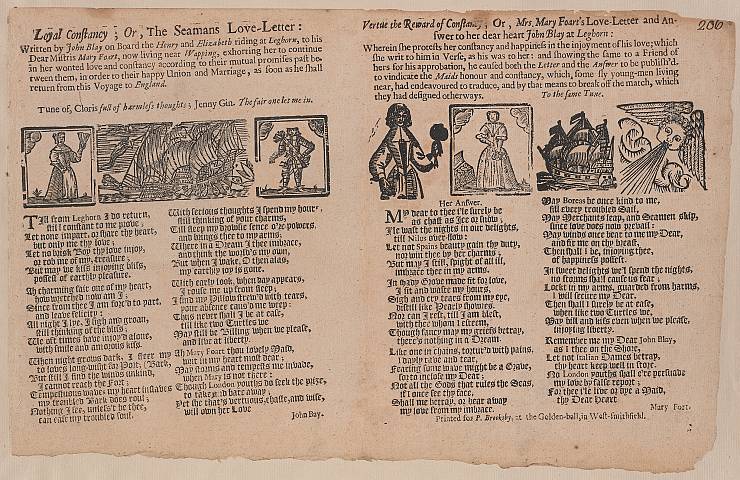 Loyal Constancy; Or, The Seamans Love-Letter:
Written by John Blay on Board the Henry and Elizabeth riding at Leghorn, to his
Dear Mistris Mary Foart, now living near Wapping, exhorting her to continue
in her wonted love and constancy according to their mutual promises past be-
tween them, in order to their happy Union and Marriage, as soon as he shall
return from this Voyage to England.
Tune of, Cloris full of harmless thoughts; Jenny Gin. The fair one let me in.
TIll from Leghorn I do return,
still constant to me prove;
Let none impart, or share thy heart,
but only me thy love;
Let no brisk Boy thy love injoy,
or rob me of my treasure;
But may we kiss injoying bliss,
possest of earthly pleasure.
Ah charming fair one of my heart,
how wretched now am I;
Since from thee I am forc'd to part,
and leave felicity:
All night I lye, I sigh and groan,
still thinking of thy bliss;
We oft times have injoy'd alone,
with smile and amorous kiss.
When night grows dark, I steer my
to loves long-wisht for Port, (Bark,
But still I find the winds unkind,
I cannot reach the Fort;
Tempestuous waves my heart inslaves
my troubled Bark does roul;
Nothing I see, unless't be thee,
can ease my troubled soul.
With serious thoughts I spend my hours,
still thinking of your charms,
Till sleep my drowsie sence o're powers,
and brings thee to my arms;
Where in a Dream I thee imbrace,
and think the world's my own,
But when I wake, O thy sweet
my earthly joy is gone.
With early look, when day appears,
I rouse me up from sleep;
I find my Pillow strew'd with tears,
your absence caus'd me weep:
Thus never shall I be at ease,
till like two Turtles we
May still be Billing when we please,
and live at liberty.
Ah Mary Foart thou lovely Maid,
writ in my heart most dear;
May storms and tempests me invade,
when Mary is not there:
Though London youths do seek the prize,
to take and bare away;
Yet she that's vertuous, chaste, and wise,
will own her Love
John Bay.
Vertue the Reward of Constancy; Or, Mrs. Mary Foart's Love-Letter and An-
swer to her dear heart John Blay at Leghorn:
206
Wherein she protests her constancy and happiness in the injoyment of his love; which
she writ to him in Verse, as his was to her: and showing the same to a Friend of
hers for his approbation, he caused both the Letter and the Answer to be publish'd,
to vindicate the Maids honour and constancy, which, some sly young-men living
near, had endeavoured to traduce, and by that means to break off the match, which
they had designed otherways. To the same Tune.
Her Answer.
MY dear to thee i'le surely be
as chast as Ice or Snow;
I'le wast the nights in our delights,
till Nilus over-flow:
Let not Spains beauty gain thy duty,
nor win thee by her charms;
But may I still, spight of all ill,
imbrace thee in my arms.
In shady Grove made fit for love,
I sit and waste my hours,
Sigh and cry tears from my eye,
distill like Pearly showers.
Nor can I rest, till I am blest,
with thee whom I esteem,
Though fancy may my peace betray,
there's nothing in a Dream.
Like one in chains, tortur'd with pains,
I daily rave and tear,
Fearing some wave might be a Grave,
for to inclose my Dear;
Not all the Gods that rules the Seas,
if I once see thy face,
Shall me betray, or bear away
my love from my imbrace.
May Boreas be once kind to me,
fill every troubled Sail,
May Merchants leap, and Seamen skip,
since love does now prevail:
May winds once bear to me my Dear,
and fix me on thy breast,
Then shall I be, injoying thee,
of happiness possest.
In sweet delights we'l spend the nights,
no frowns shall cause us fear;
Lockt in my arms, guarded from harms,
I will secure my Dear.
Then shall I surely be at ease,
when like two Turtles we,
May bill and kiss even when we please,
injoying liberty.
Remember me my Dear John Blay,
as I thee on the Shore,
Let not Italian Dames betray,
thy heart keep well in store.
No London youths shall e're perswade
my love by false report;
For thee i'le live or dye a Maid,
thy Dear Heart
Mary Fort.
Printed for P. Brooksby, at the Golden-ball, in West-smithfield.